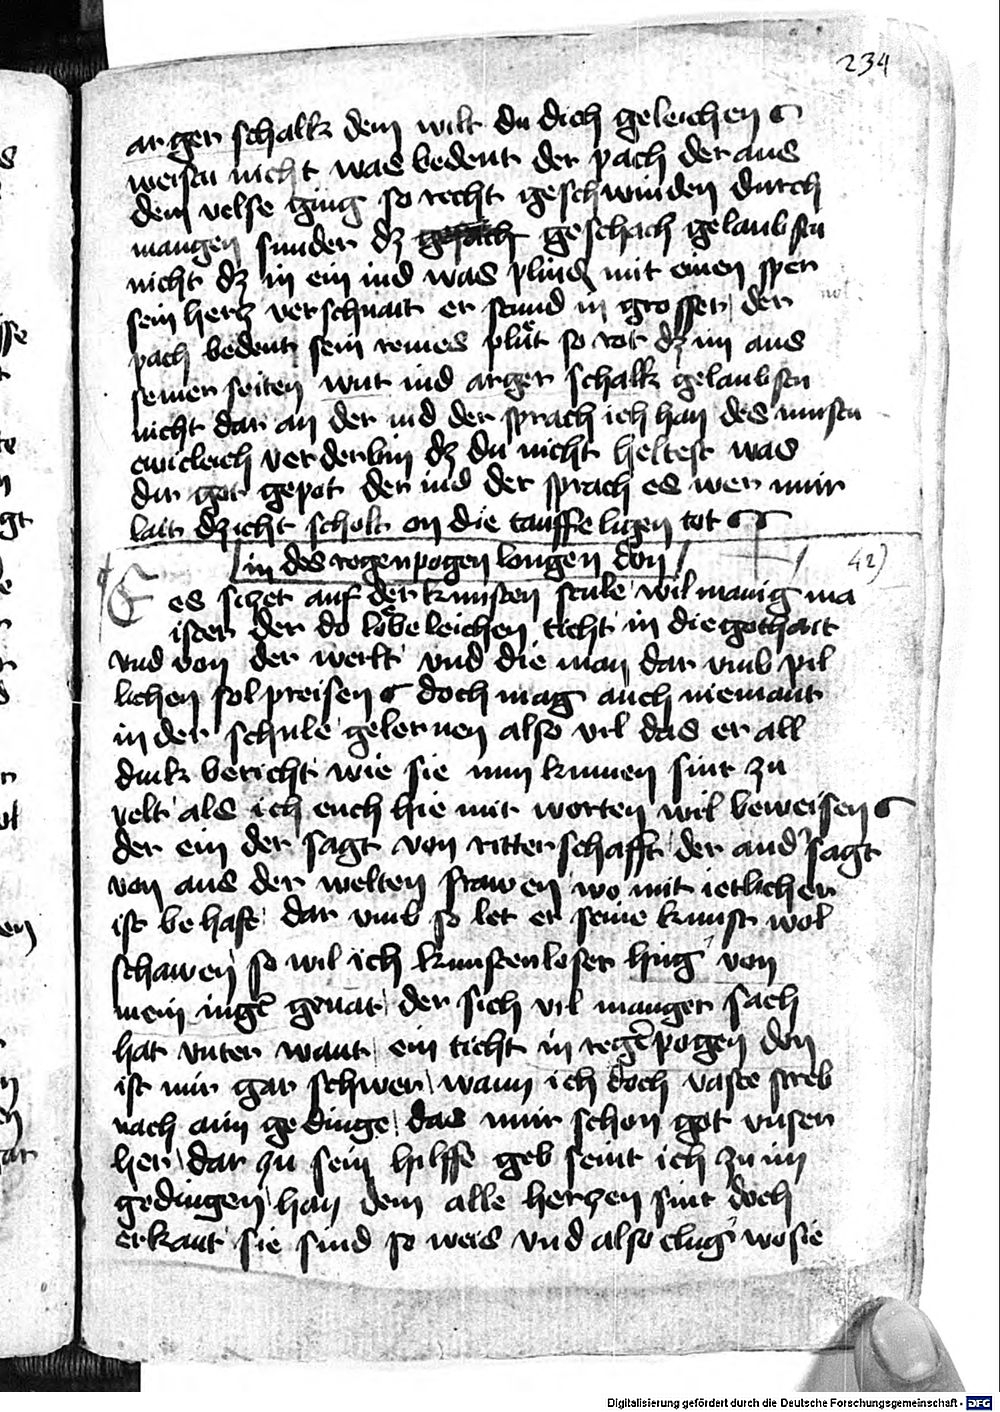 234
arger schalk dem wilt du dich geleichen
weistu nicht was bedeut der pach der aus
dem velse ging so recht geschwinden durch
mangen sunder dz gesach geschach gelaubstu
nicht dz in ein iud was plind mit einen sper
sein hercz verschnait er stund in grosser der
pach bedeut sein reines plut so rot dz im aus
seiner seiten wut iud arger schalk gelaubstu
nicht dar an der iud der sprach ich han des mustu
ewicleich verderbin dz du nicht heltest was
dir got gepot der iud der sprach es wer mir
lait dz icht scholt on die tauffe ligen tot
in des regenpogen langen don
42)
Es schet auf der kunsten stule wil manig ma
ister der do lobeleichen ticht in die gothait
vnd von der werlt vnd die man dar vmb pil
lichen sol preisen doch mag auch niemant
in der schule gelernen also vil das er all
dink bericht wie sie nun kumen sint zu
velt als ich euch hie mit worten wil beweisen
der ein der sagt von ritterschafft der and sagt
von aus der welten frawen wo mit ietlicher
ist behaft dar vmb so let er seine kunst wol
schawen so wil ich kunstenloser hing von
mein genat der sich vil manger sach
hat vnter want ein ticht in regepogen don
ist mir gar schwer wann ich doch vaste streb
nach aim gedinge das mir schon got vnser
her dar zu sein hilffe geb seint ich zu im
gedingen han dem alle herzen sint doch
erkant sie sind so weis vnd also clug wo sie
Digitalisierung gefördert durch die Deutsche Forschungsgemeinschaft - DFG